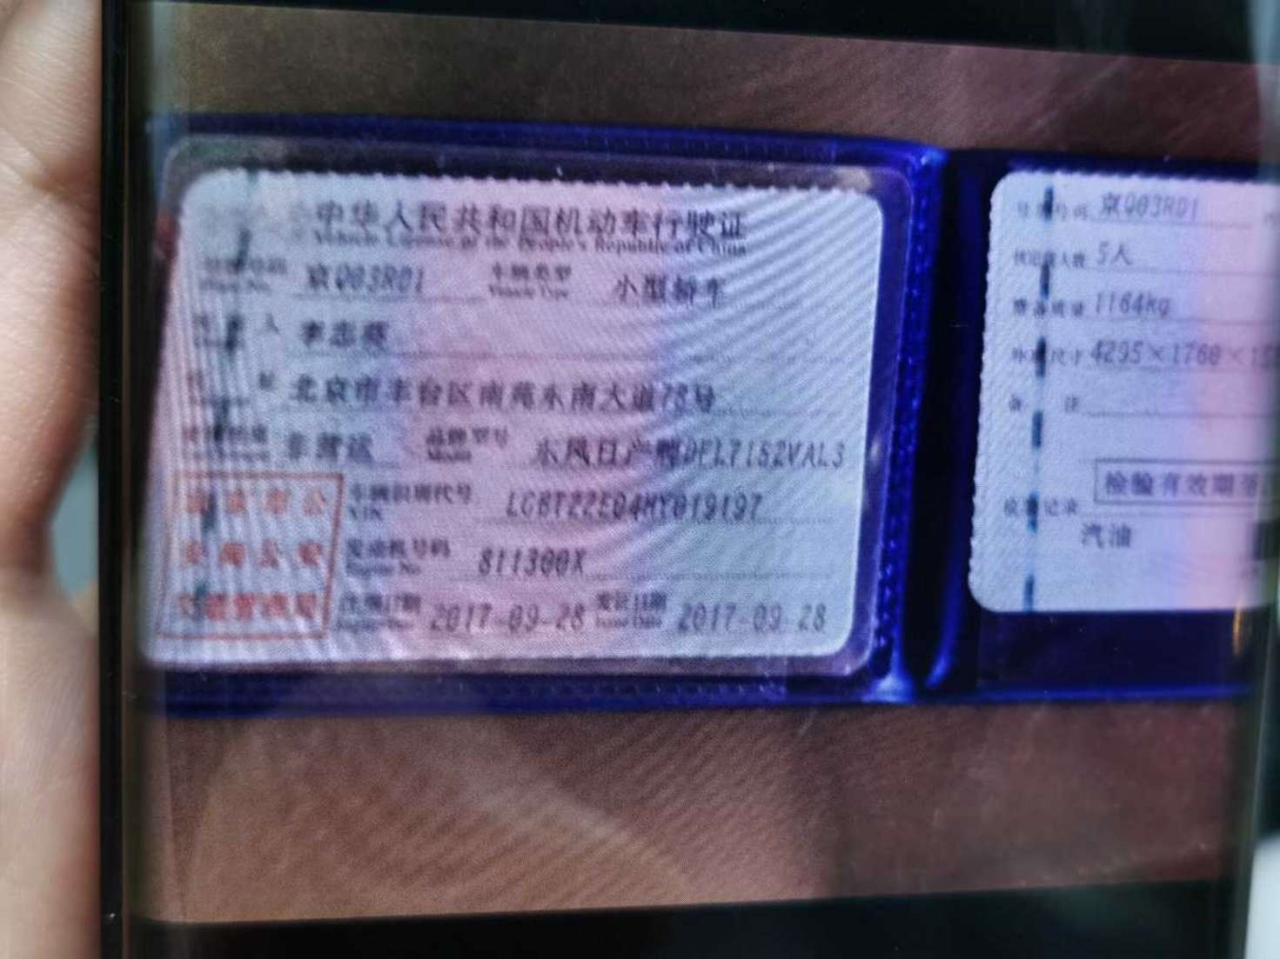 中华人民共和国机动车行驶证
Vehicle License of the People's Republic of China
号牌号码 京Q03R01 车辆类型 小型轿车
Vehicle Type
人 李志
址 北京市丰台区南苑永南大道78号
非营运 品牌型号 东风日产牌DFL7152VAL3
Model
车辆识别代号
VIN
发动机号码 811300X
Engine No.
注册日期 2017-09-28 发证日期 2017-09-28
Issue Date
北京市公
安局公安
交通管理局
号牌号码 京Q03R01
核定载人数 5人
整备质量 1164kg
外廓尺寸 4295×1760×
备 注
检验有效期至
检验记录
汽油